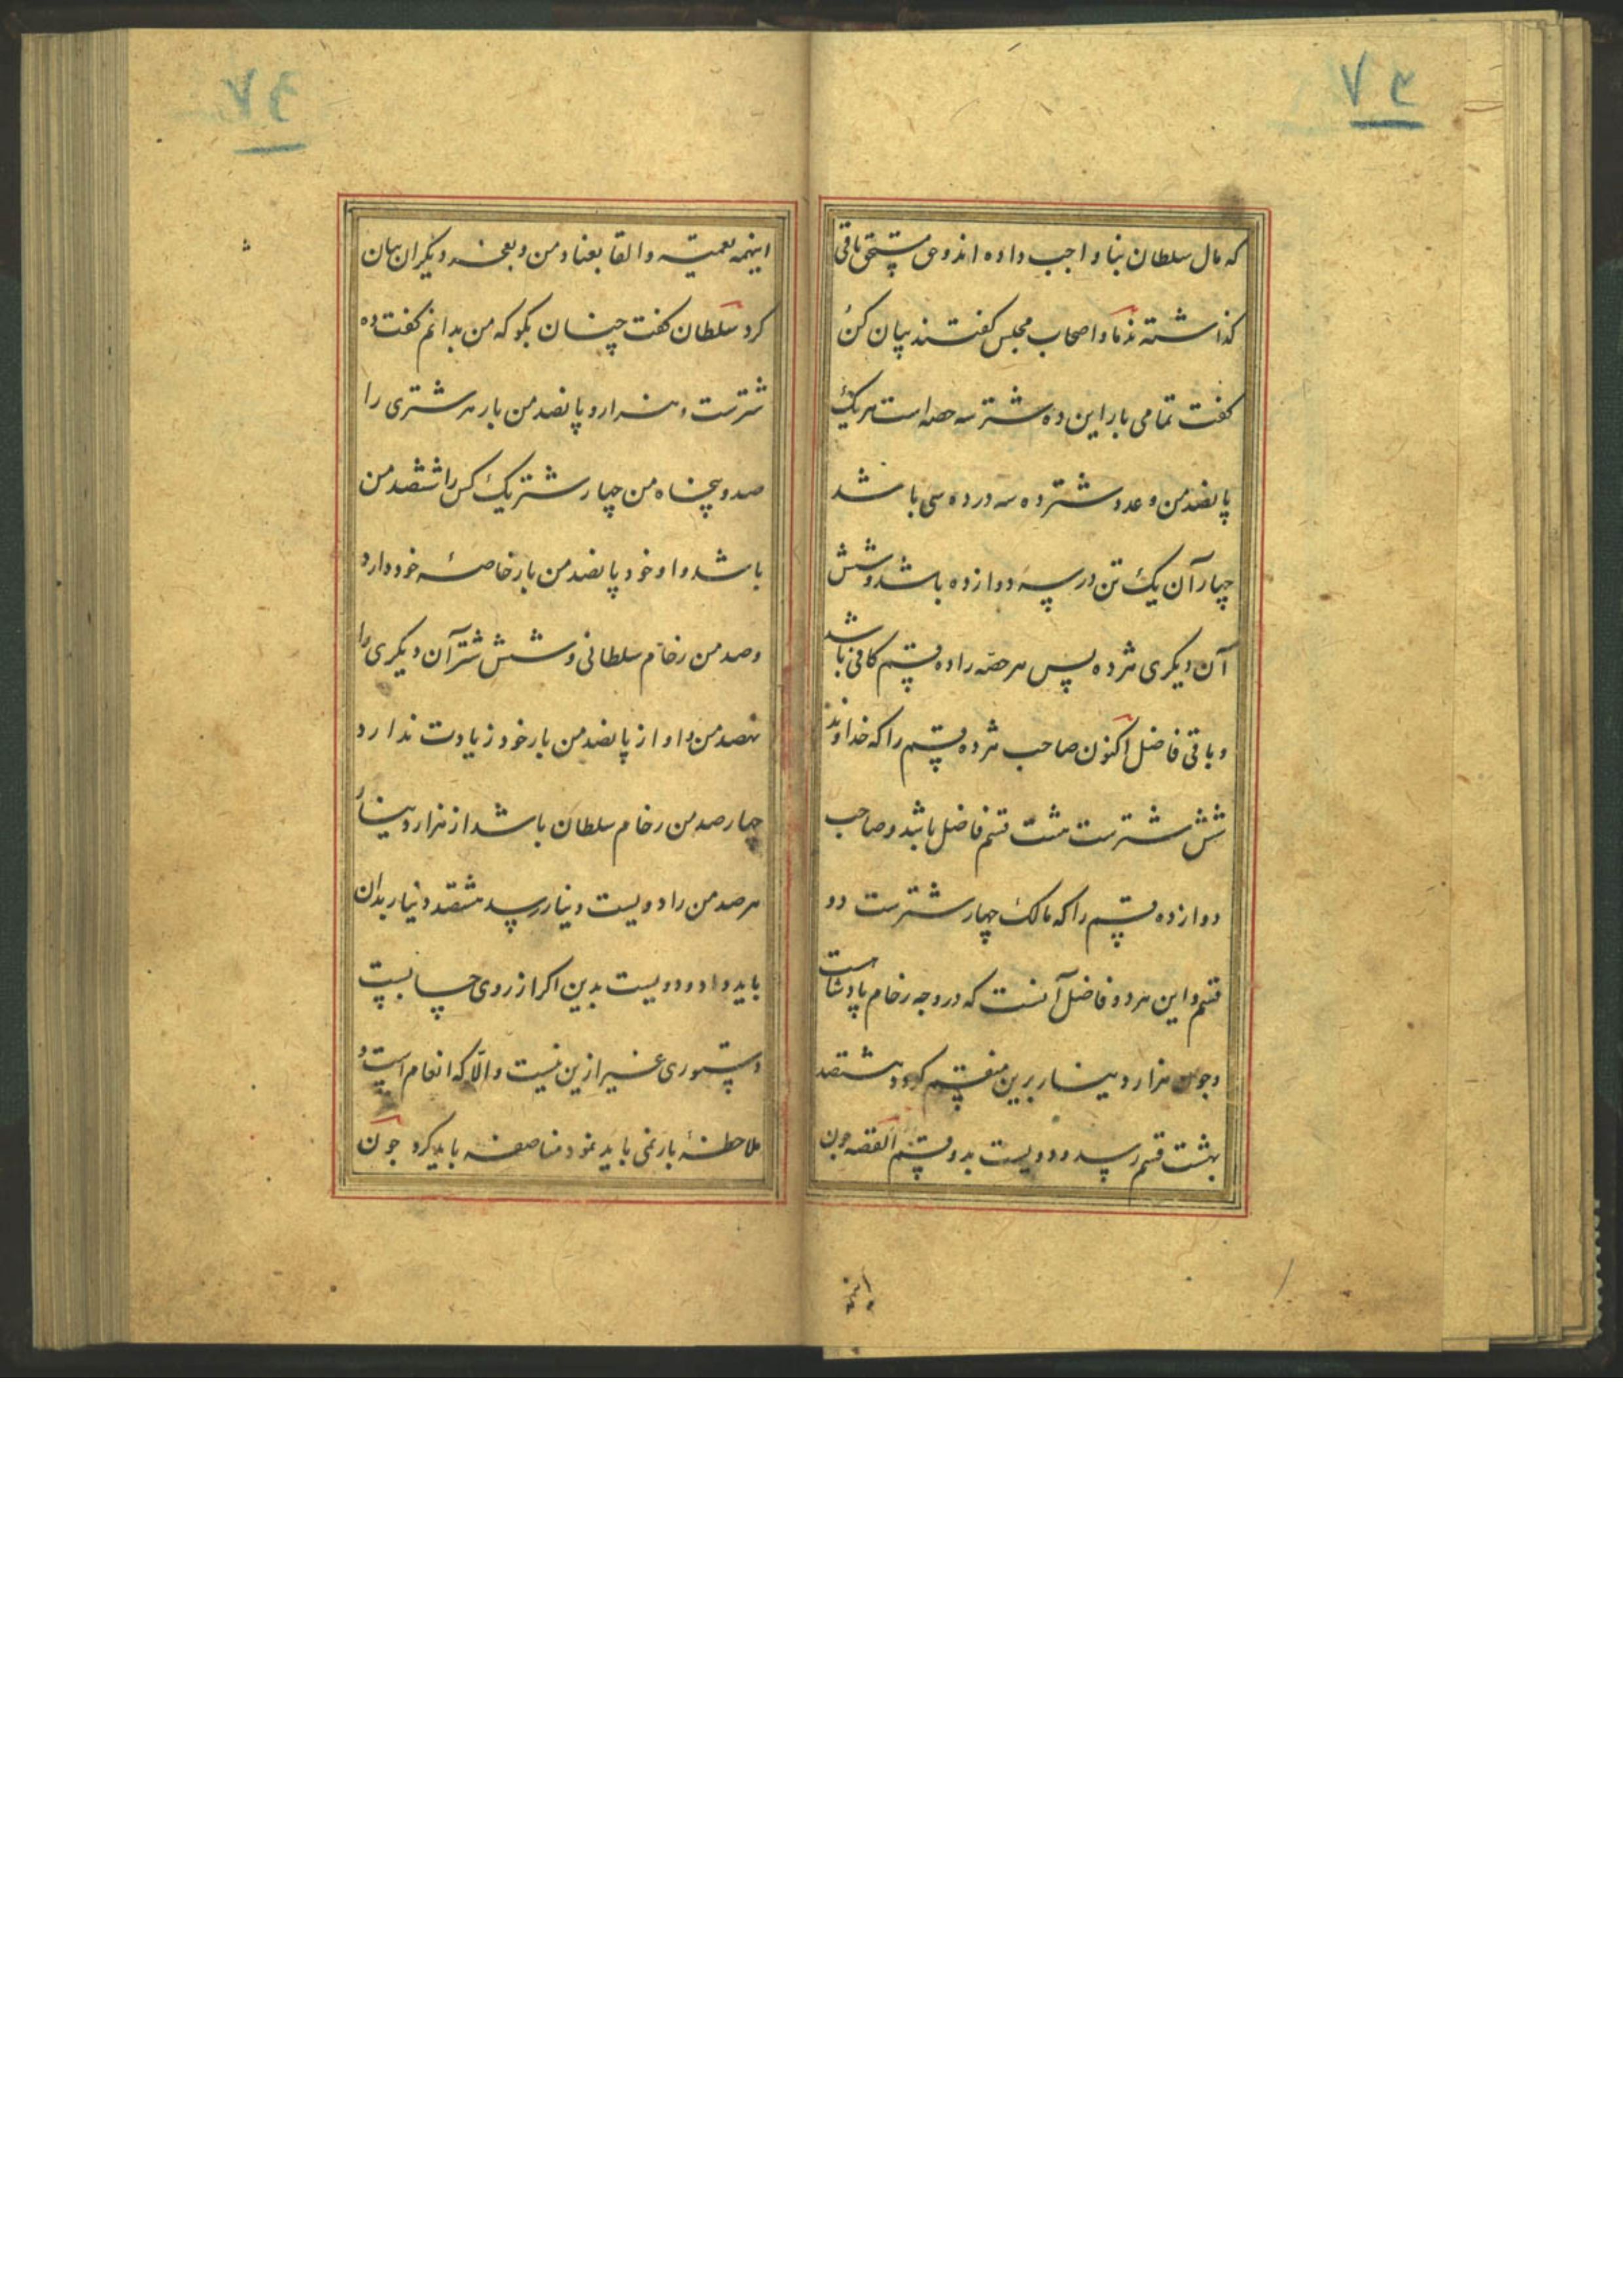 ۷۴
که مال سلطان بنا واجب داده اند و حق مستحق باقی
گذاشته ندما و اصحاب مجلس گفتند بیان کن
گفت تمامی بار این ده شتر سه حصه است هر یک
پانصد من و عدد شتر ده سه در ده سی باشد
چهار آن یک تن در سه دوازده باشد و شش
آن دیگری هژده پس هر حصه را ده قسم کافی باشد
و باقی فاضل اکنون صاحب هژده قسم را که خداوند
شش شترست هشت قسم فاضل باشد و صاحب
دوازده قسم را که مالک چهار شترست دو
قسم و این هر دو فاضل آنست که در وجه رخام پادشاست
و چون هزار دینار برین منقسم گردد هشتصد
بهشت قسم رسد و دویست بدو قسم القصه چون
این
اینهمه تعمیته و القا بعناد من و بعجز دیگران بیان
کرد سلطان گفت چنان بگو که من بدانم گفت ده
شترست و هزار و پانصد من بار هر شتری را
صد و پنجاه من چهار شتر یک کس را ششصد من
باشد و او خود پانصد من بار خاصهٔ خود دارد
و صد من رخام سلطانی و شش شتر آن دیگری را
نهصد من و او از پانصد من بار خود زیادت ندارد
چهار صد من رخام سلطان باشد از هزار دینار
هر صد من را دویست دینار رسد هشتصد دینار بدان
باید داد و دویست بدین اگر از روی حسابست
دستوری غیر ازین نیست و الّا که انعام است و
ملاحظهٔ بار نمی باید نمود مناصفه باید کرد چون